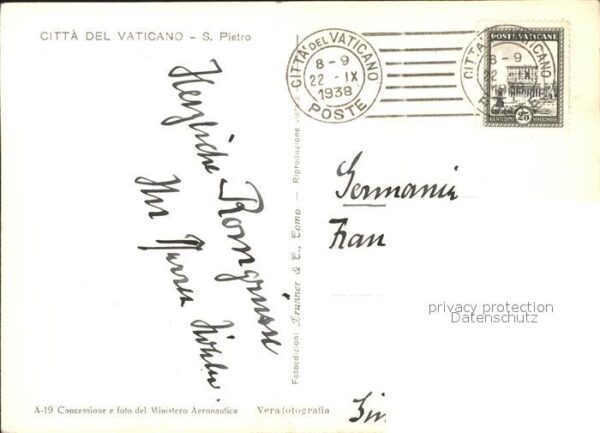 CITTÀ DEL VATICANO - S. Pietro
Herzliche Romgrüsse
Ihr Pfarrer
CITTA' DEL VATICANO
8 - 9
22 · IX
1938
POSTE
CITTA' DEL VATICANO
8 - 9
22 IX
POSTE VATICANE
25
Germania
Fran
privacy protection
Datenschutz
Fotoedizioni Brunner & C., Como - Riproduzione
A-19 Concessione e foto del Ministero Aeronautica
Vera fotografia